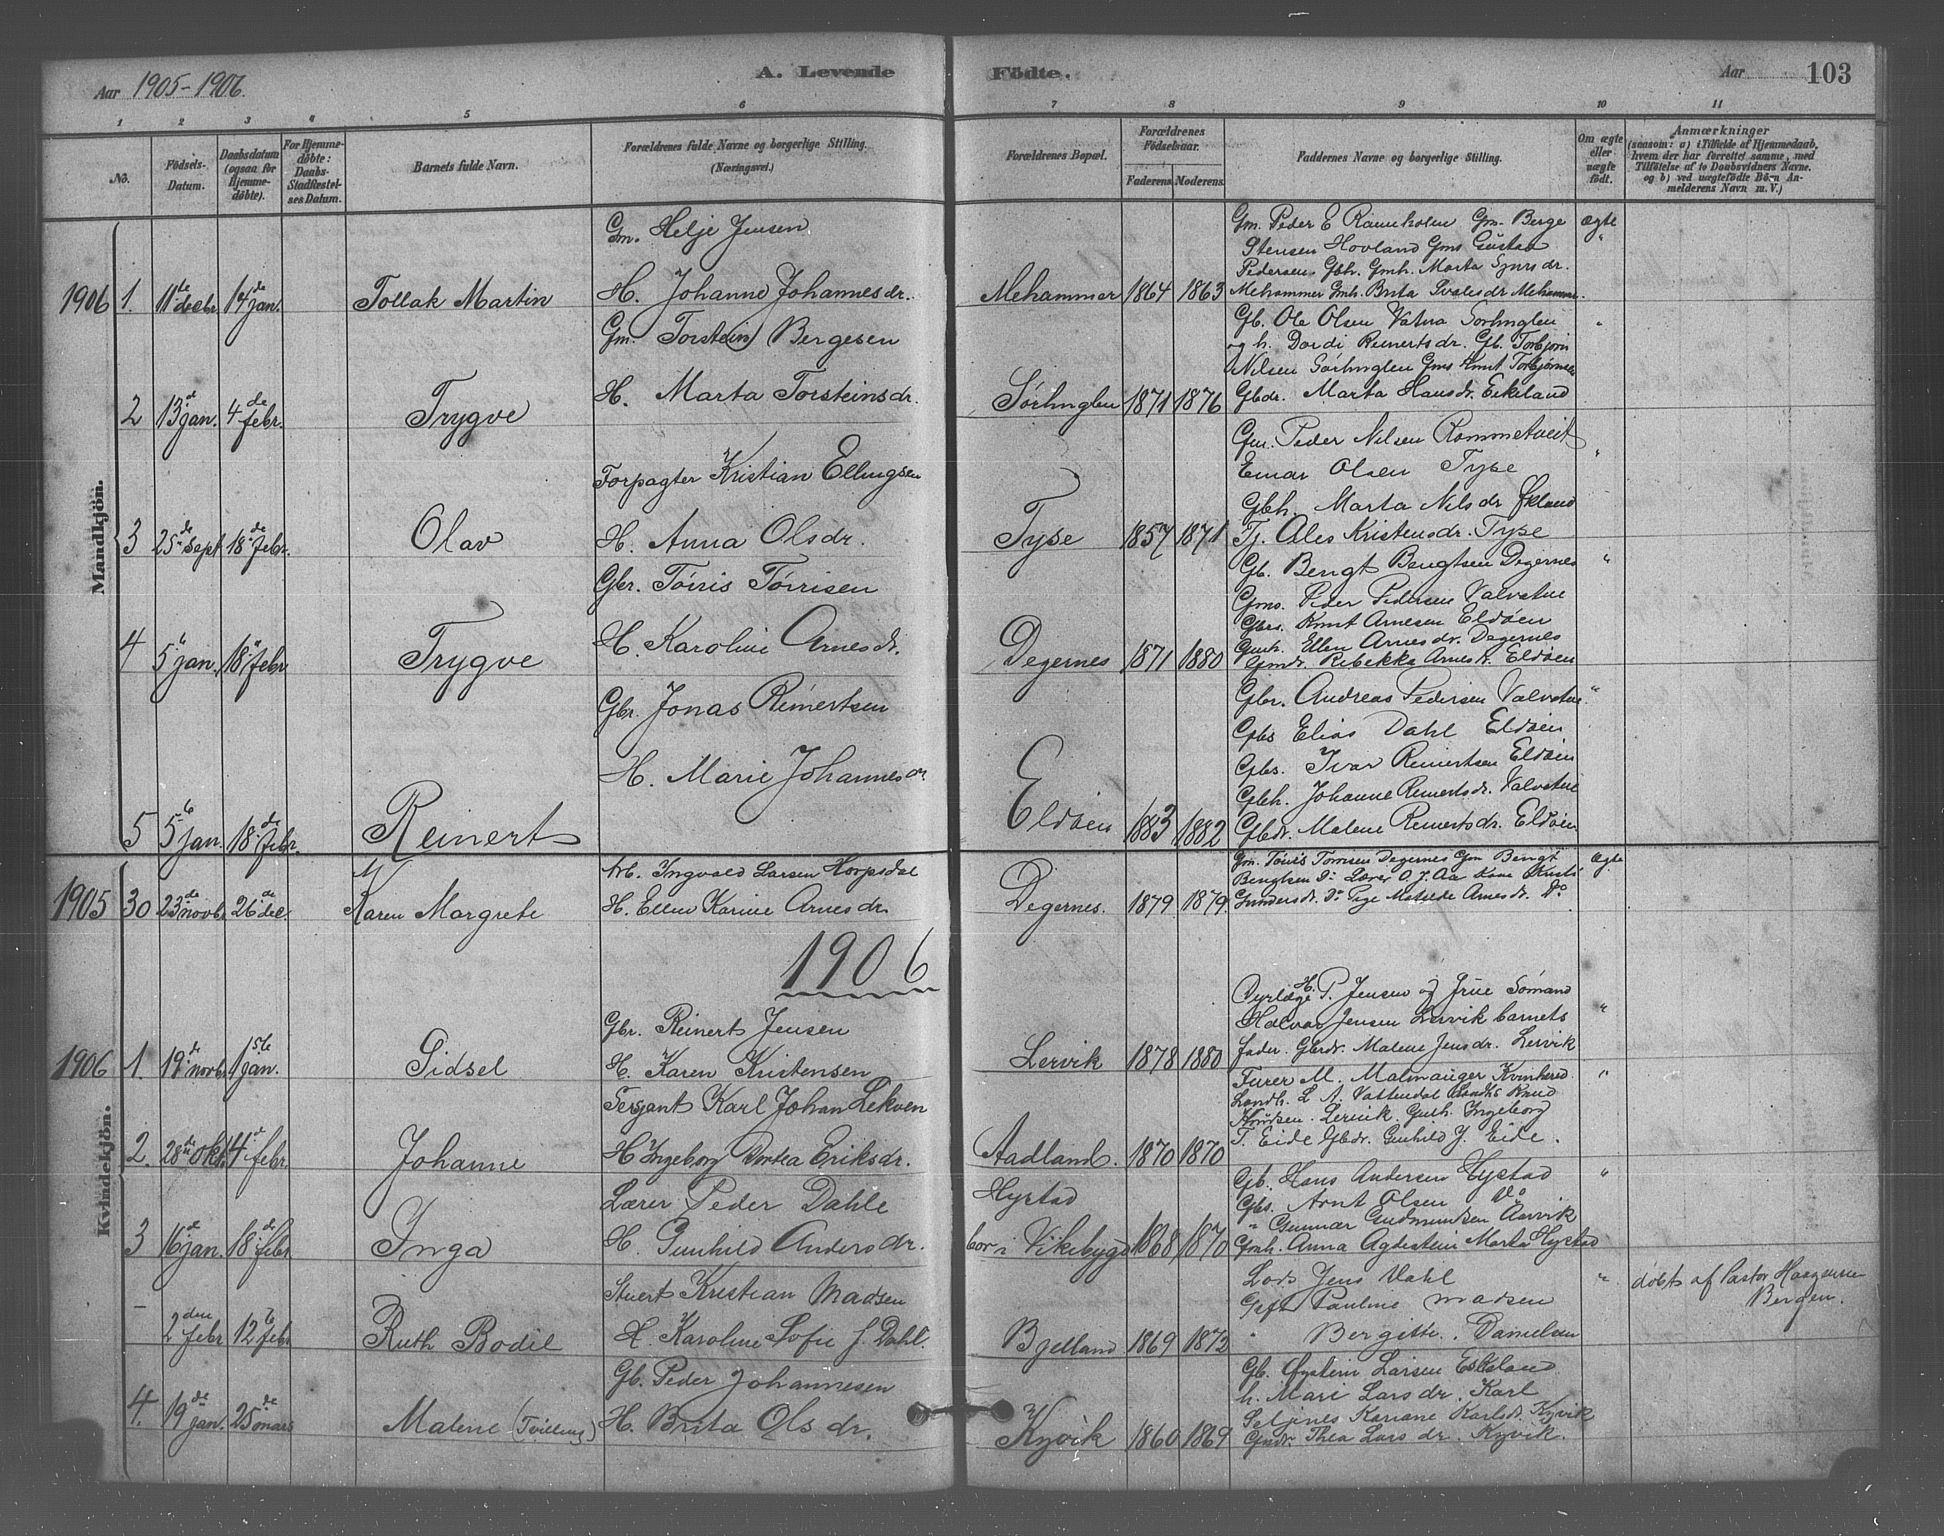 Aar 1905-1906.
A. Levende Födte.
Aar 103
1 2 3 4 5 6 7 8 9 10 11
No.
Födsels-Datum.
Daabsdatum (ogsaa for Hjemme-döbte).
For Hjemme-döbte: Daabs-Stadfæstel-ses Datum.
Barnets fulde Navn.
Forældrenes fulde Navne og borgerlige Stilling. (Næringsvei.)
Forældrenes Bopæl.
Forældrenes Födselsaar.
Faderens Moderens
Faddernes Navne og borgerlige Stilling.
Om ægte eller uægte födt.
Anmærkninger
(saasom: a) i Tilfælde af Hjemmedaab, hvem der har forrettet samme, med Tilföielse af to Daabsvidners Navne. og b) ved uægtefödte Börn Anmelderens Navn m. V.)
Mandkjön.
1906 1. 11te decbr. 14de jan. Tollak Martin
Gm. Helje Jensen
H. Johanne Johannesdr.
Mehammer 1864 1863
Gm. Peder E Ramsholm Gm. Berge
Stensen Hovland Gms Gustav
Pedersen Gbh. Gmh. Marta Sjursdr.
Mehammer Gmh. Brita Mehammer
ægte
2 13de jan. 4de febr. Trygve
Gm. Torstein Bergesen
H. Marta Torsteinsdr.
Sörhuglen 1871 1876
Gb. Ole Olsen Vatna Sörhuglen
og h. Dordi Reinertsdr. Gb. Torbjørn
Nilsen Sörhuglen Gms Knut Torbjørnsen
Gbdr. Marta Hansdr. Eikeland
"
3 25de Sept. 18de febr. Olav
Forpagter Kristian Ellingsen
H. Anna Olsdr.
Tyse 1857 1871
Gm. Peder Nilsen Rommetveit
Einar Olsen Tyse
Gbh. Marta Nilsdr
Pj. Ales Kristensdr. Tyse
"
4 5te jan. 18de febr Trygve
Gbr. Törris Törrisen
H. Karoline Arnesdr.
Degernes 1871 1880
Gb. Bengt Bengtsen Degernes
Gms. Peder Pedersen Valvatne
Gbrs. Knut Arnesen Eldöen
Gmh. Ellen Arnesdr. Degernes
Gmdr. Rebekka Arnesdr. Eldöen
"
5 5te jan. 18de febr. Reinert
Gbr. Jonas Reinertsen
H. Marie Johannesdr
Eldöen 1883 1882
Gbr. Andreas Pedersen Valvatne
Gbs Elias Dahl Eldöen
Gbs. Ivar Reinertsen Eldöen
Gbh. Johanne Reinertsdr. Valvatne
Gbdr. Malene Reinertsdr. Eldöen
"
1905 30 23de novb. 26de dec. Karen Margrete
Arb. Ingvald Larsen Horpsdal
H. Ellen Karine Arnesdr
Degernes. 1879 1879.
Gm. Törris Torrisen Degernes Gm Bengt
Bengtsen Do Lærer O. J. Aa Kone Kristi
Gundersdr. Do Pige Matilde Arnesdr. Do
Ægte
1906
Kvindekjön.
1906 1. 19de novbr. 1ste jan. Sidsel
Gbr. Reinert Jensen
H. Karen Kristensen
Lervik 1878 1880
Dyrlæge H. P. Jensen og frue Sömand
Halvar Jensen Lervik barnets
fader. Gbrdr. Malene Jensdr. Lervik
"
2. 28de Okt. 4de febr. Johanne
Sergant Karl Johan Lekven
H Ingeborg Dortea Eriksdr.
Aadland. 1870 1870
Furer M. Malmanger Kvinhered
Landh. L A. Vattendal Knud
Knudsen. Lervik. Gmh. Ingeborg
T. Eide Gbdr. Gunhild J. Eide.
"
3 16de jan. 18de febr Inga
Lærer Peder Dahle
H. Gunhild Andersdr.
Hystad
bor i Vikebygd 1868 1870
Gb. Hans Andersen Hystad
Gbs. Arnt Olsen Do
" Gunnar Gudmundsen Aarvik
Gmh. Anna Agdestein Marta Hystad
"
- 2den febr 12te febr Ruth Bodil
Stuert Kristian Madsen
H. Karoline Sofie f. Dahl.
Bjelland 1869 1873
Lods Jens Dahl
Gift Pauline Madsen
" Bergitte. Danielsen
"
döbt af Pastor Haagensen Bergen.
4. 19de jan. 25de mars Malene (Tvilling)
Gb. Peder Johannesen
H. Brita Olsdr.
Kyvik 1860 1869
Gb. Øystein Larsen Eskeland
h. Mari Larsdr. Karl
Kariane Karlsdr. Kyvik
Gmdr. Thea Larsdr. Kyvik.